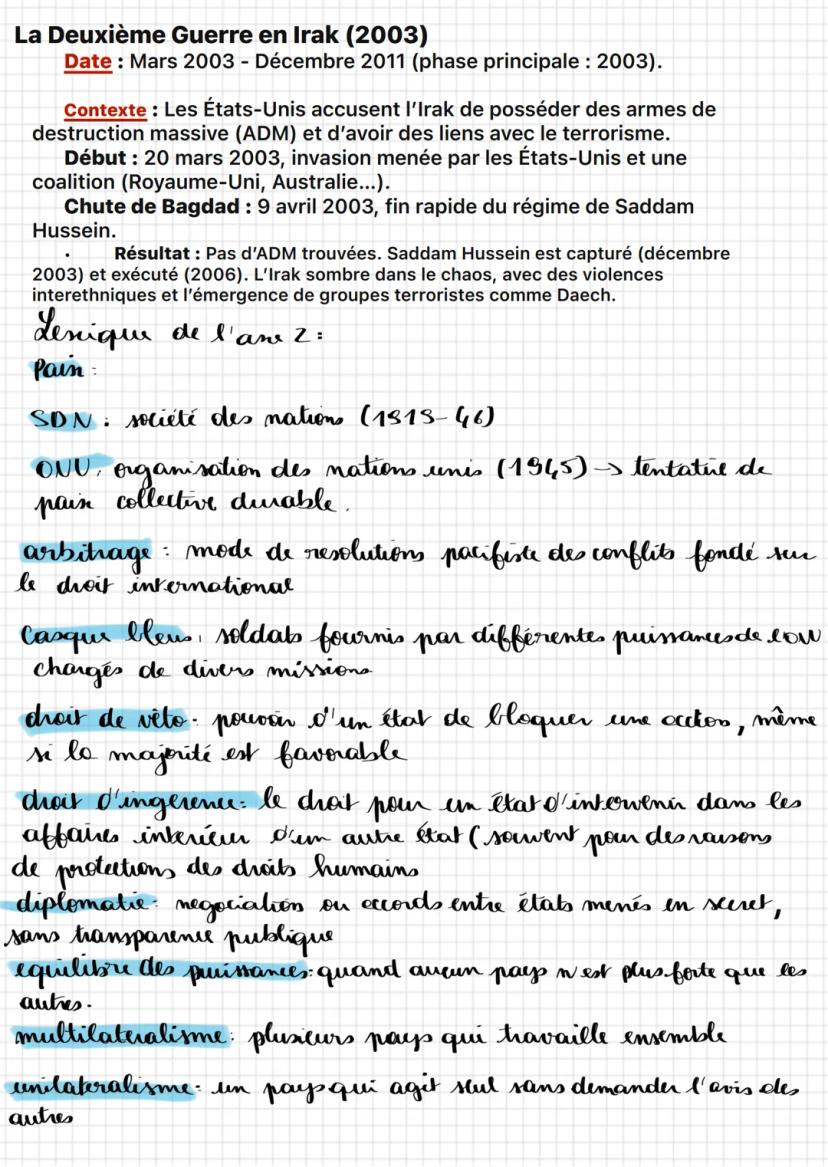 La Deuxième Guerre en Irak (2003)
Date : Mars 2003 - Décembre 2011 (phase principale : 2003).
Contexte : Les États-Unis accusent l'Irak de posséder des armes de
destruction massive (ADM) et d'avoir des liens avec le terrorisme.
Début : 20 mars 2003, invasion menée par les États-Unis et une
coalition (Royaume-Uni, Australie...).
Chute de Bagdad : 9 avril 2003, fin rapide du régime de Saddam
Hussein.
· Résultat : Pas d'ADM trouvées. Saddam Hussein est capturé (décembre
2003) et exécuté (2006). L'Irak sombre dans le chaos, avec des violences
interethniques et l'émergence de groupes terroristes comme Daech.
Lexique de l'axe 2 :
Paix :
SDN : société des nations (1919-46)
ONU : organisation des nations unis (1945) → tentative de
paix collective durable.
arbitrage : mode de resolutions pacifiste des conflits fondé sur
le droit international
Casque bleus : soldats fournis par différentes puissances de l'ONU
chargés de divers missions
droit de véto : pouvoir d'un état de bloquer une action, même
si la majorité est favorable
droit d'ingerence : le droit pour un état d'intervenir dans les
affaires interieur d'un autre état (souvent pour des raisons
de protections des droits humains
diplomatie : negociation ou accords entre états menés en secret,
sans transparence publique
equilibre des puissances : quand aucun pays n'est plus forte que les
autres.
multilateralisme : plusieurs pays qui travaille ensemble
unilateralisme : un pays qui agit seul sans demander l'avis des
autres